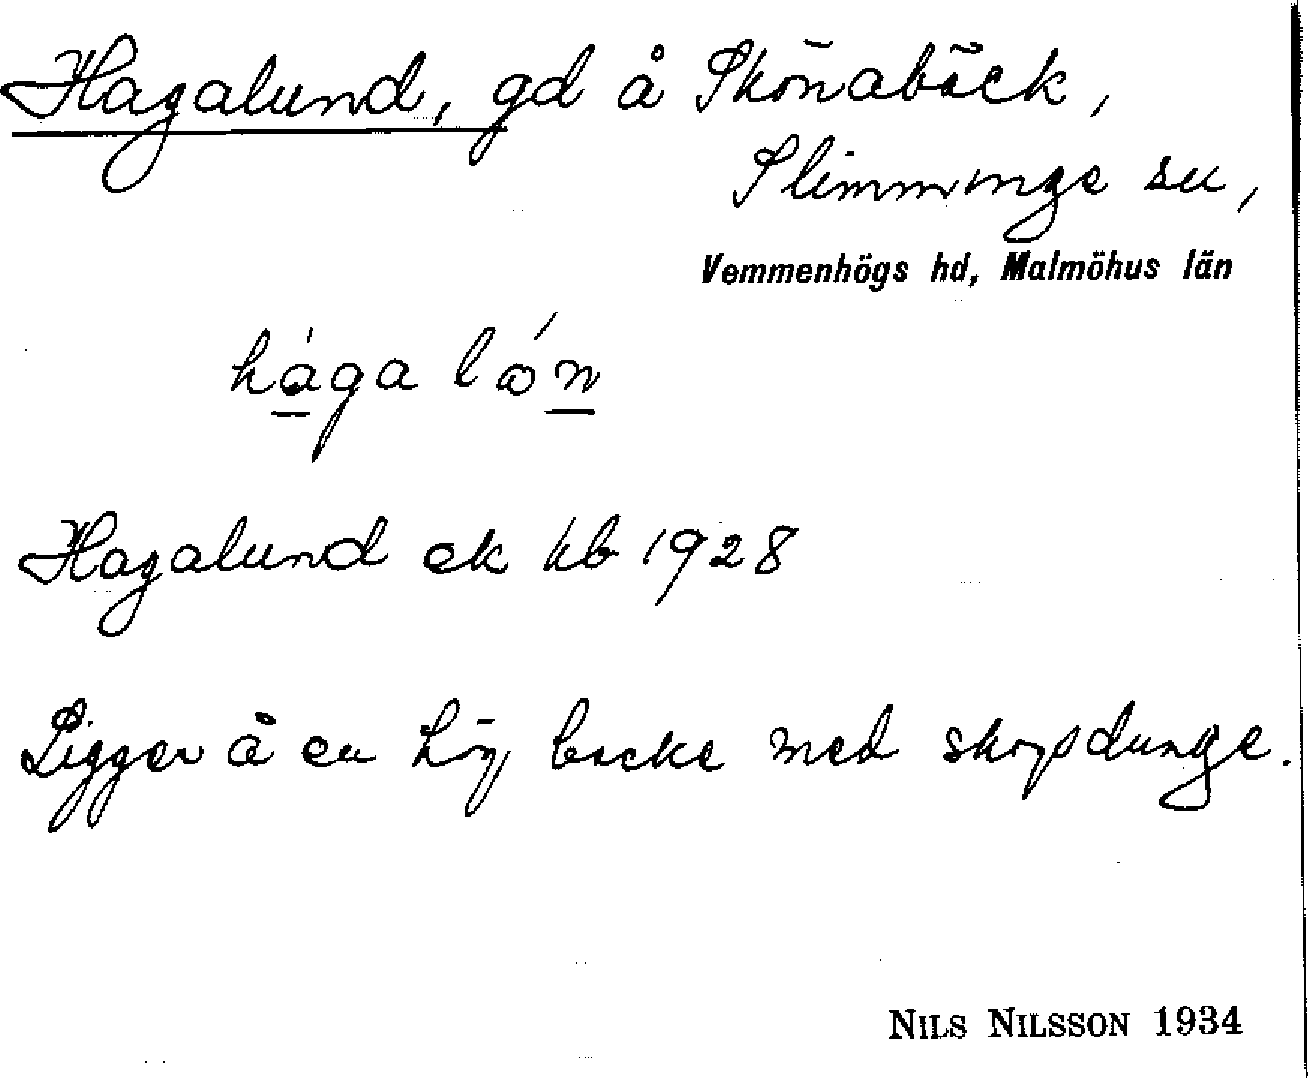 Hagalund, gd å Skönabäck,
Slimminge sn,
Vemmenhögs hd, Malmöhus län
hága lón
Hagalund ek kb 1928
Ligger å en hög backe med skogsdunge.
NILS NILSSON 1934